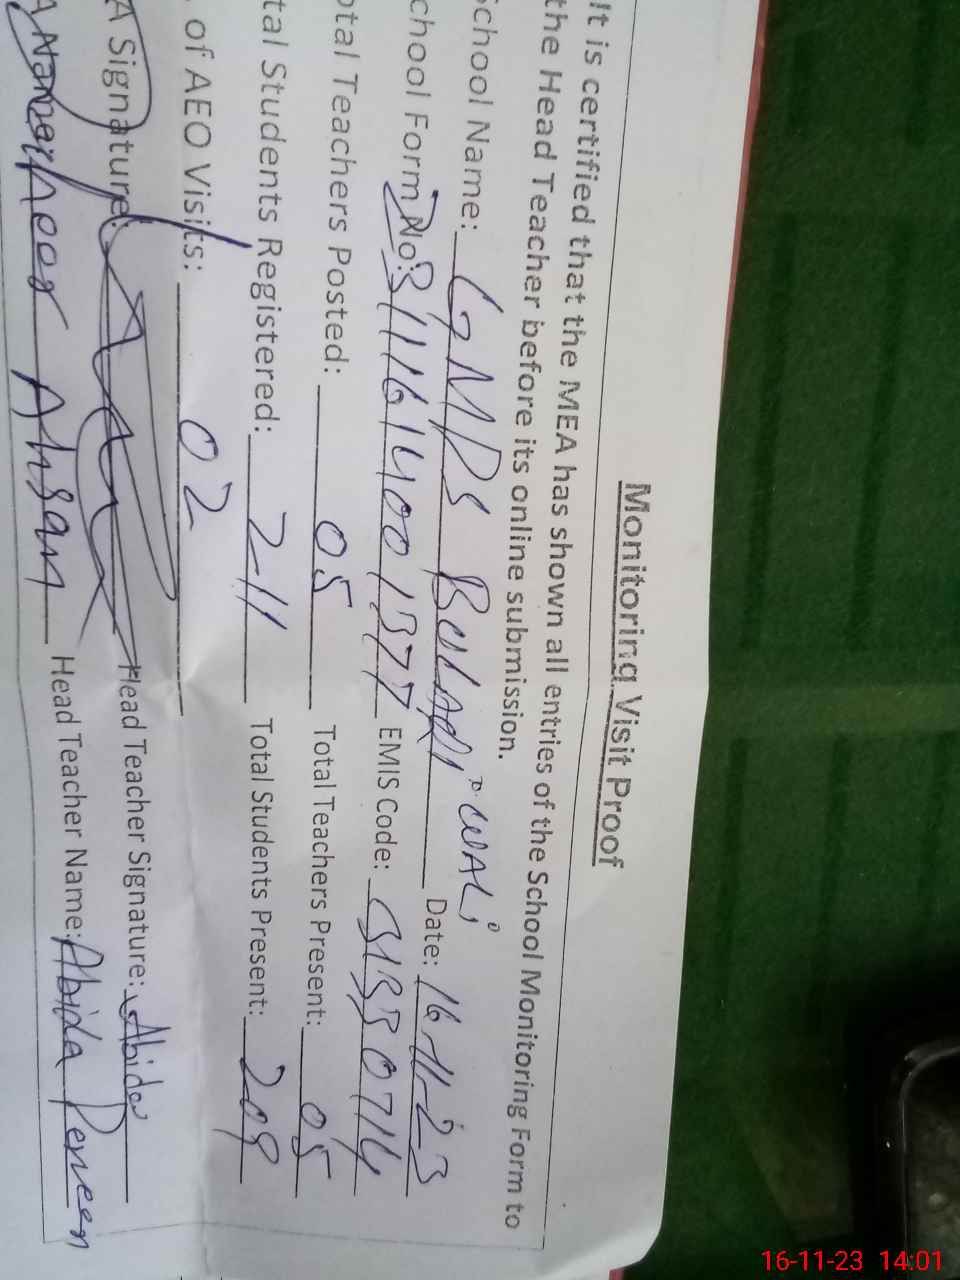 Monitoring Visit Proof
It is certified that the MEA has shown all entries of the School Monitoring Form to
the Head Teacher before its online submission.
School Name: GMPS Date: 16-11-23
chool Form No: EMIS Code: 31330714
otal Teachers Posted: 05 Total Teachers Present: 05
tal Students Registered: 211 Total Students Present: 209
. of AEO Visits: 02
A Signature: Head Teacher Signature: Abida
A Name: Ahsan Head Teacher Name: Abida Perveen
16-11-23 14:01